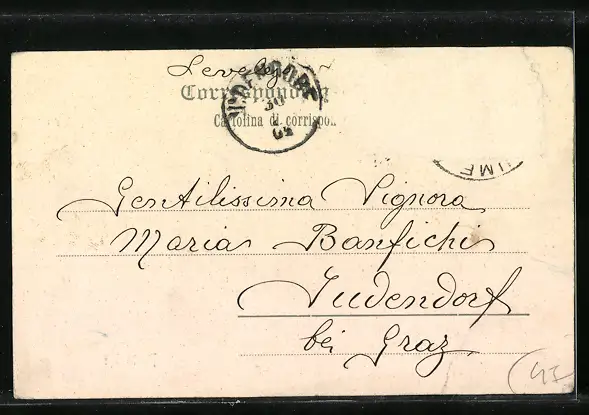 Levelez
Correspondenz
Cartolina di corrispon.
JUDENDORF
30
02
UME
Gentilissima Signora
Maria Banfichi
Judendorf
bei Graz
47